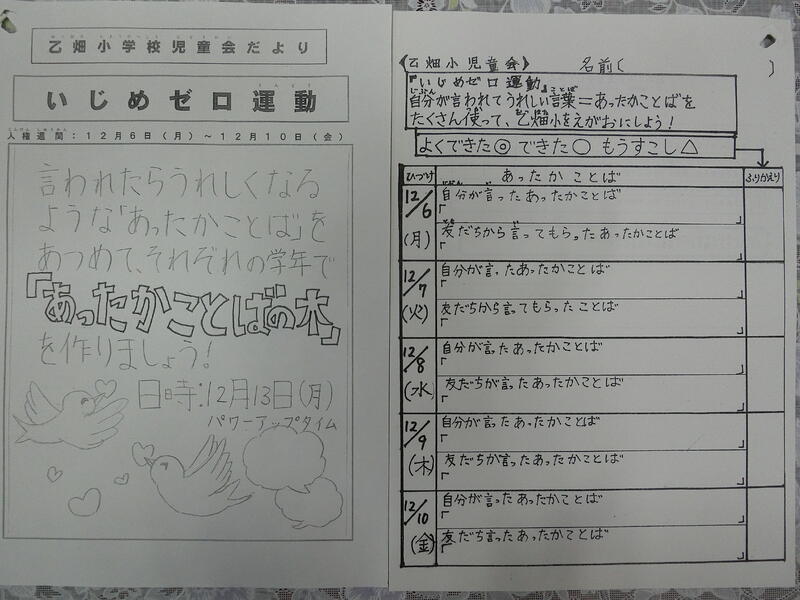 乙畑小学校児童会だより
いじめゼロ運動
人権週間：12月6日（月）～12月10日（金）
言われたらうれしくなる
ような「あったかことば」を
あつめて、それぞれの学年で
「あったかことばの木」
を作りましょう!
日時:12月13日(月)
パワーアップタイム
《乙畑小児童会》 名前( )
『いじめゼロ運動』
自分が言われてうれしい言葉=あったかことばを
たくさん使って、乙畑小をえがおにしよう!
よくできた◎ できた○ もうすこし△
ひづけ あったかことば ふりかえり
12/6
(月)
自分が言ったあったかことば
「 」
友だちから言ってもらったあったかことば
「 」
12/7
(火)
自分が言ったあったかことば
「 」
友だちから言ってもらったことば
「 」
12/8
(水)
自分が言ったあったかことば
「 」
友だちが言ったあったかことば
「 」
12/9
(木)
自分が言ったあったかことば
「 」
友だちが言ったあったかことば
「 」
12/10
(金)
自分が言ったあったかことば
「 」
友だち言ったあったかことば
「 」